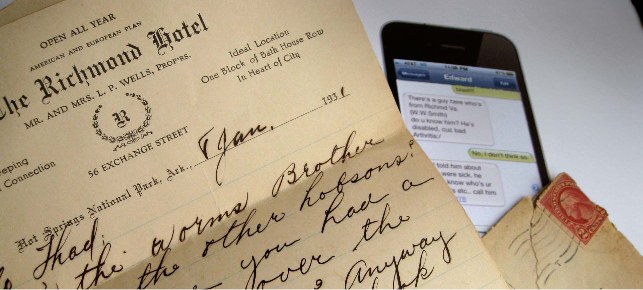 OPEN ALL YEAR
AMERICAN AND EUROPEAN PLAN
The Richmond Hotel
MR. AND MRS. L. P. WELLS, PROP'RS.
Ideal Location
One Block of Bath House Row
In Heart of City
R
Connection
56 EXCHANGE STREET
Hot Springs National Park, Ark., 8 Jan. 1931
Thad:
the worms Brother
the other hobsons?
you had a
over the
Anyway
Messages
Edward
Edit
There's a guy here who's
from Richmd Va.
(W.W.Smith)
do u know him? He's
disabled, cuz bad
Arthritis,/
No, I don't think so..
told him about
were sick. he
know who's ur
etc.. call him